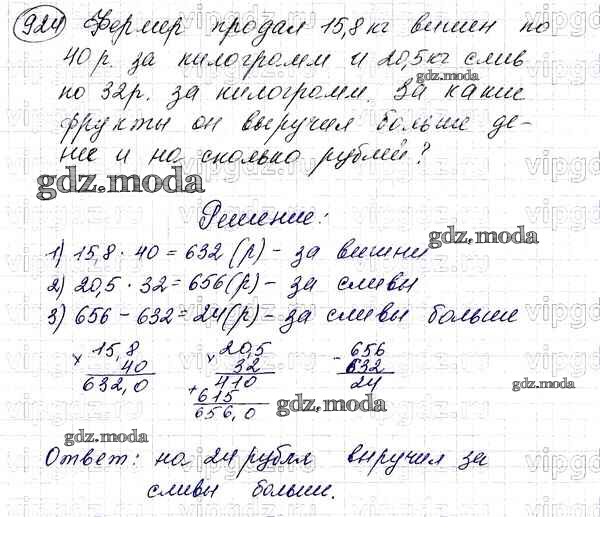 924 Фермер продал 15,8 кг вишен по
40 р. за килограмм и 20,5 кг слив
по 32 р. за килограмм. За какие
фрукты он выручил больше де-
нег и на сколько рублей?
gdz.moda
gdz.moda
Решение:
1) 15,8 · 40 = 632 (р) - за вишни
gdz.moda
2) 20,5 · 32 = 656 (р) - за сливы
3) 656 - 632 = 24 (р) - за сливы больше
× 15,8 × 20,5 - 656
40 32 632
632,0 410 24
+ 615
656,0
gdz.moda
gdz.moda
gdz.moda
Ответ: на 24 рубля выручил за
сливы больше.